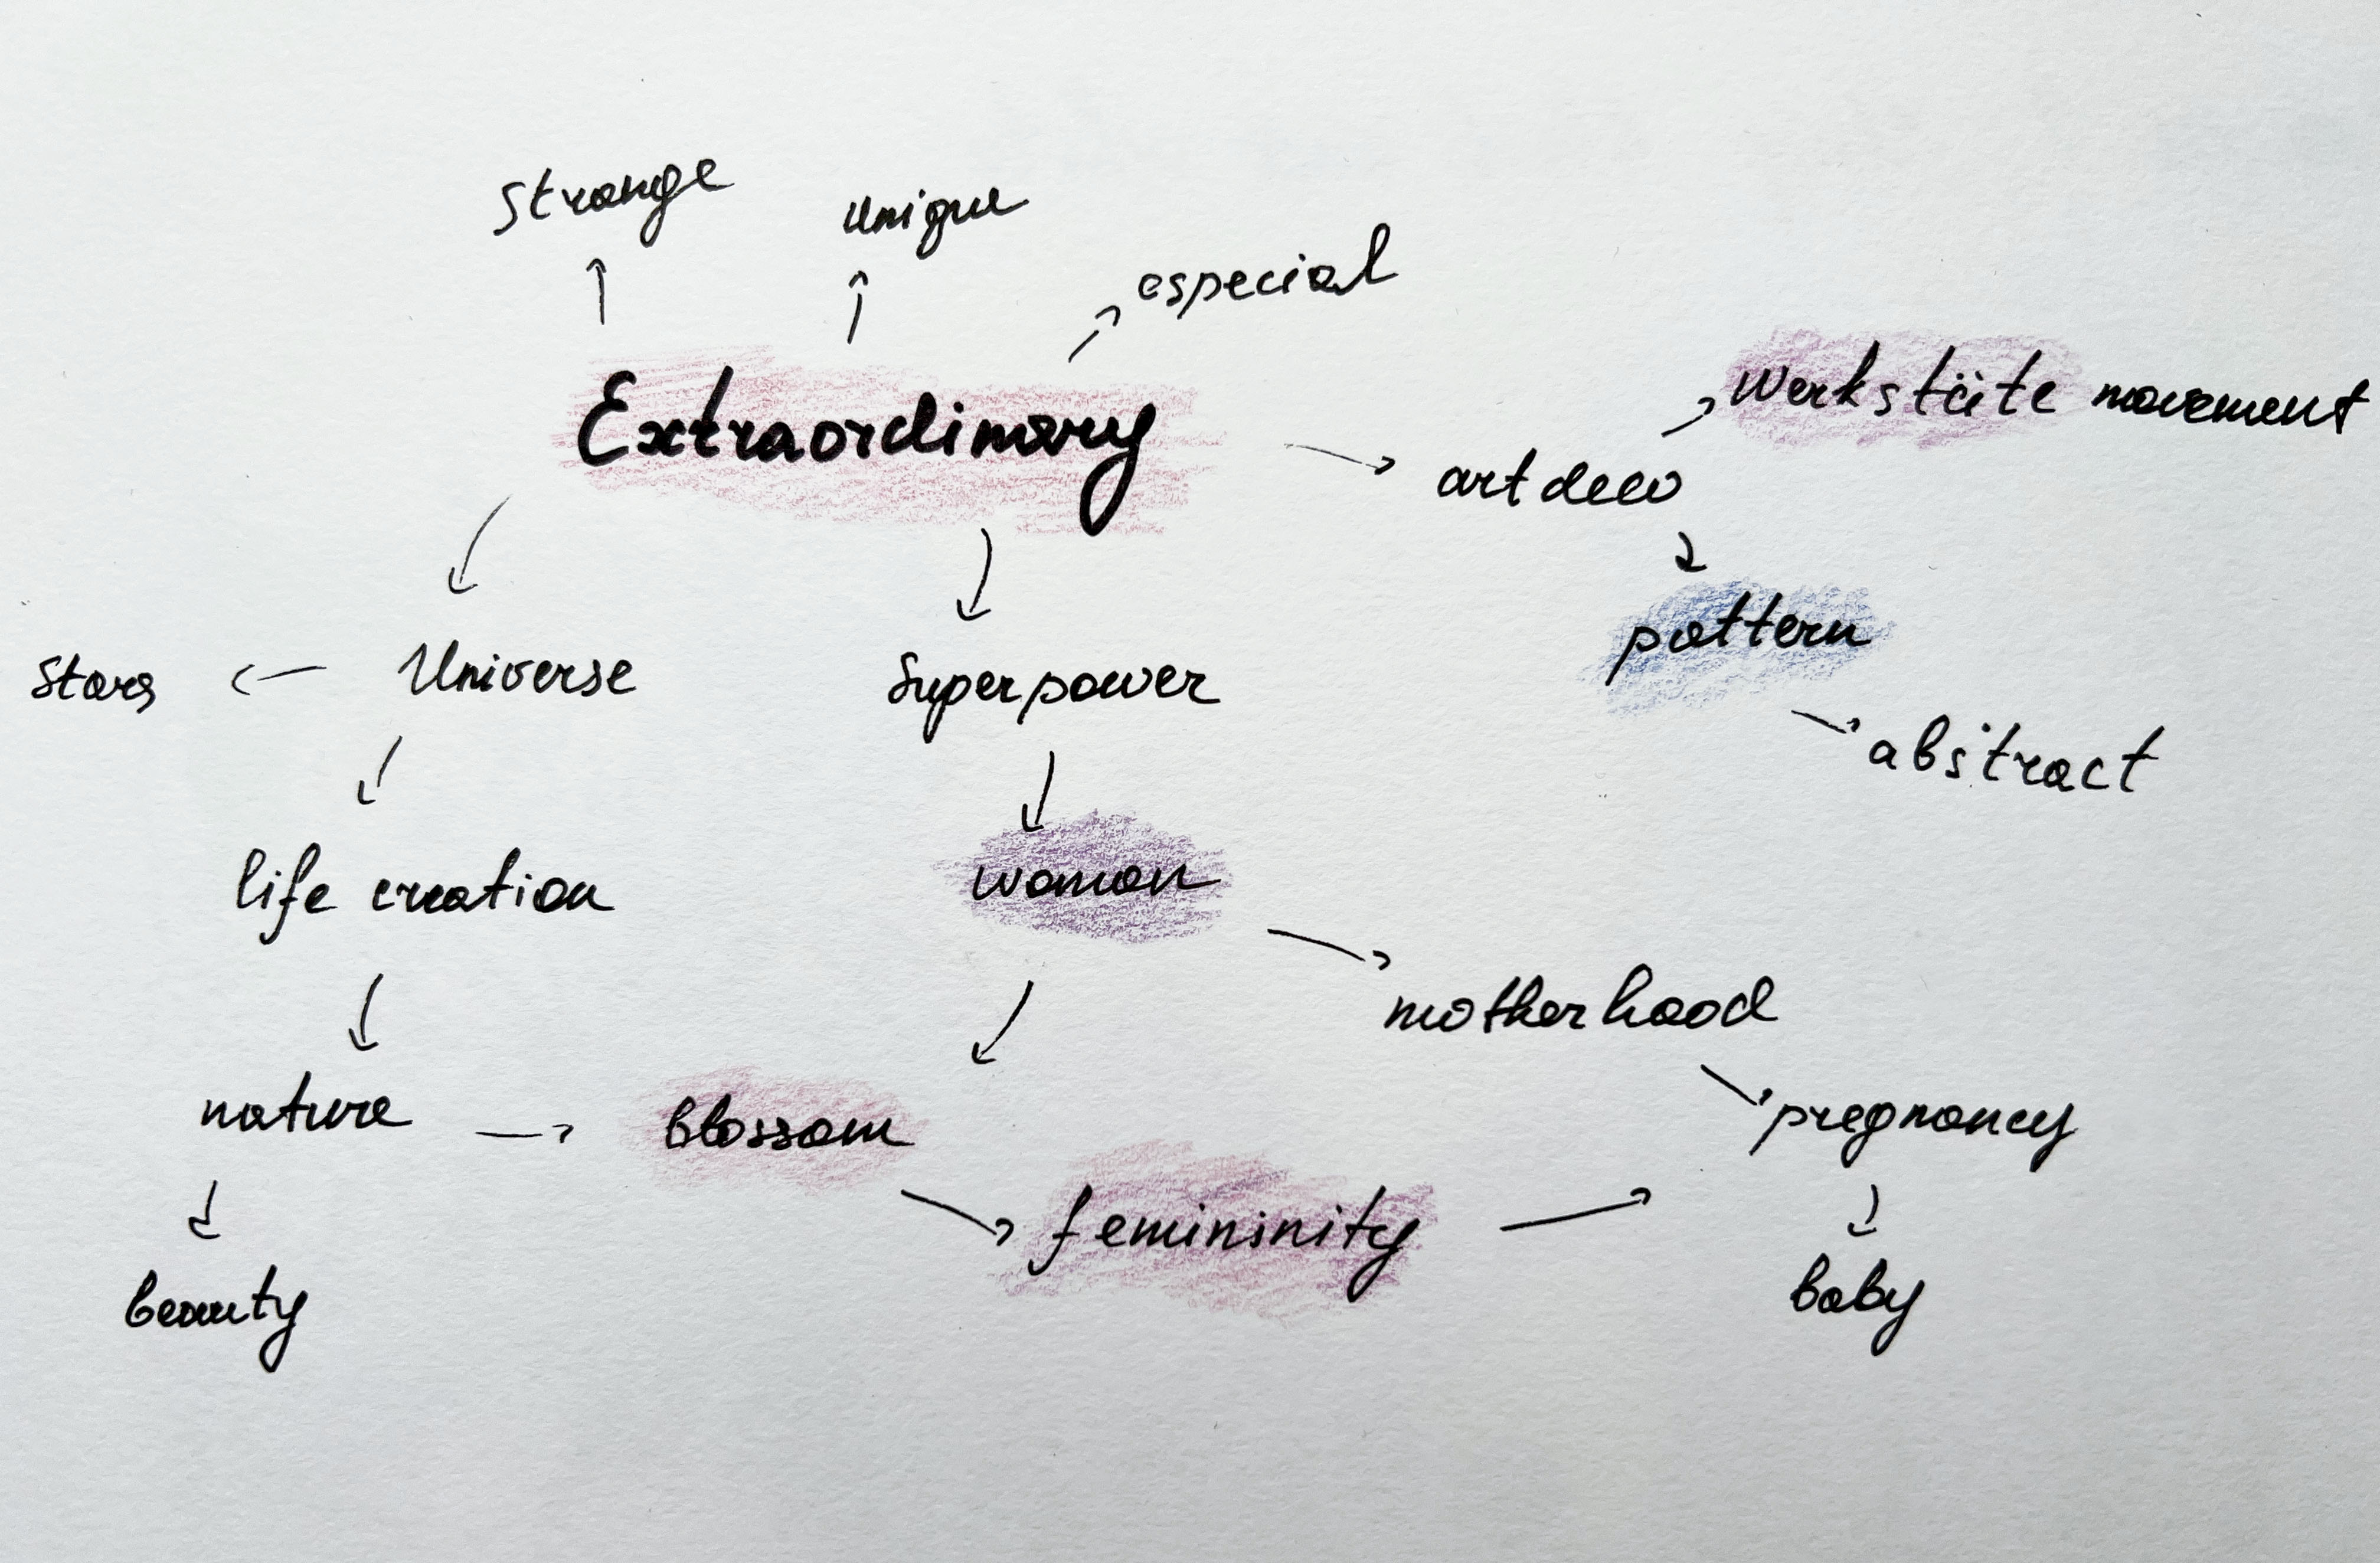 Strange
unique
especial
Extraordinary
Werkstäte movement
art deco
pattern
Stars
Universe
Superpower
abstract
life creation
woman
motherhood
nature
blossom
pregnancy
femininity
beauty
baby